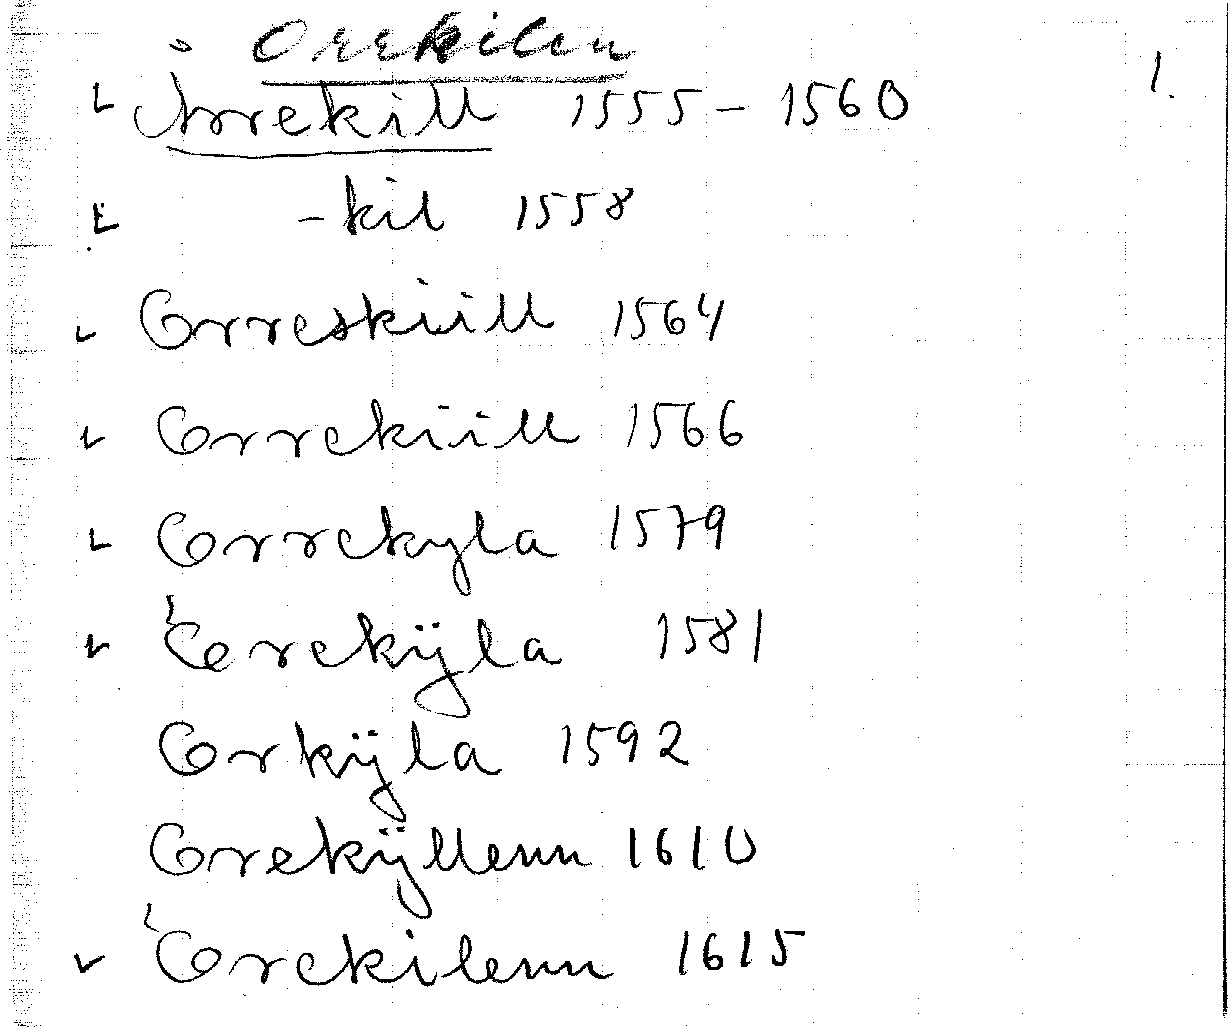 Orekilen
Arrekill 1555 – 1560 1.
-kil 1558
Orreskiill 1564
Orrekiill 1566
Orrekyla 1579
Orekÿla 1581
Orkÿla 1592
Orekÿllenn 1610
Orekilenn 1615